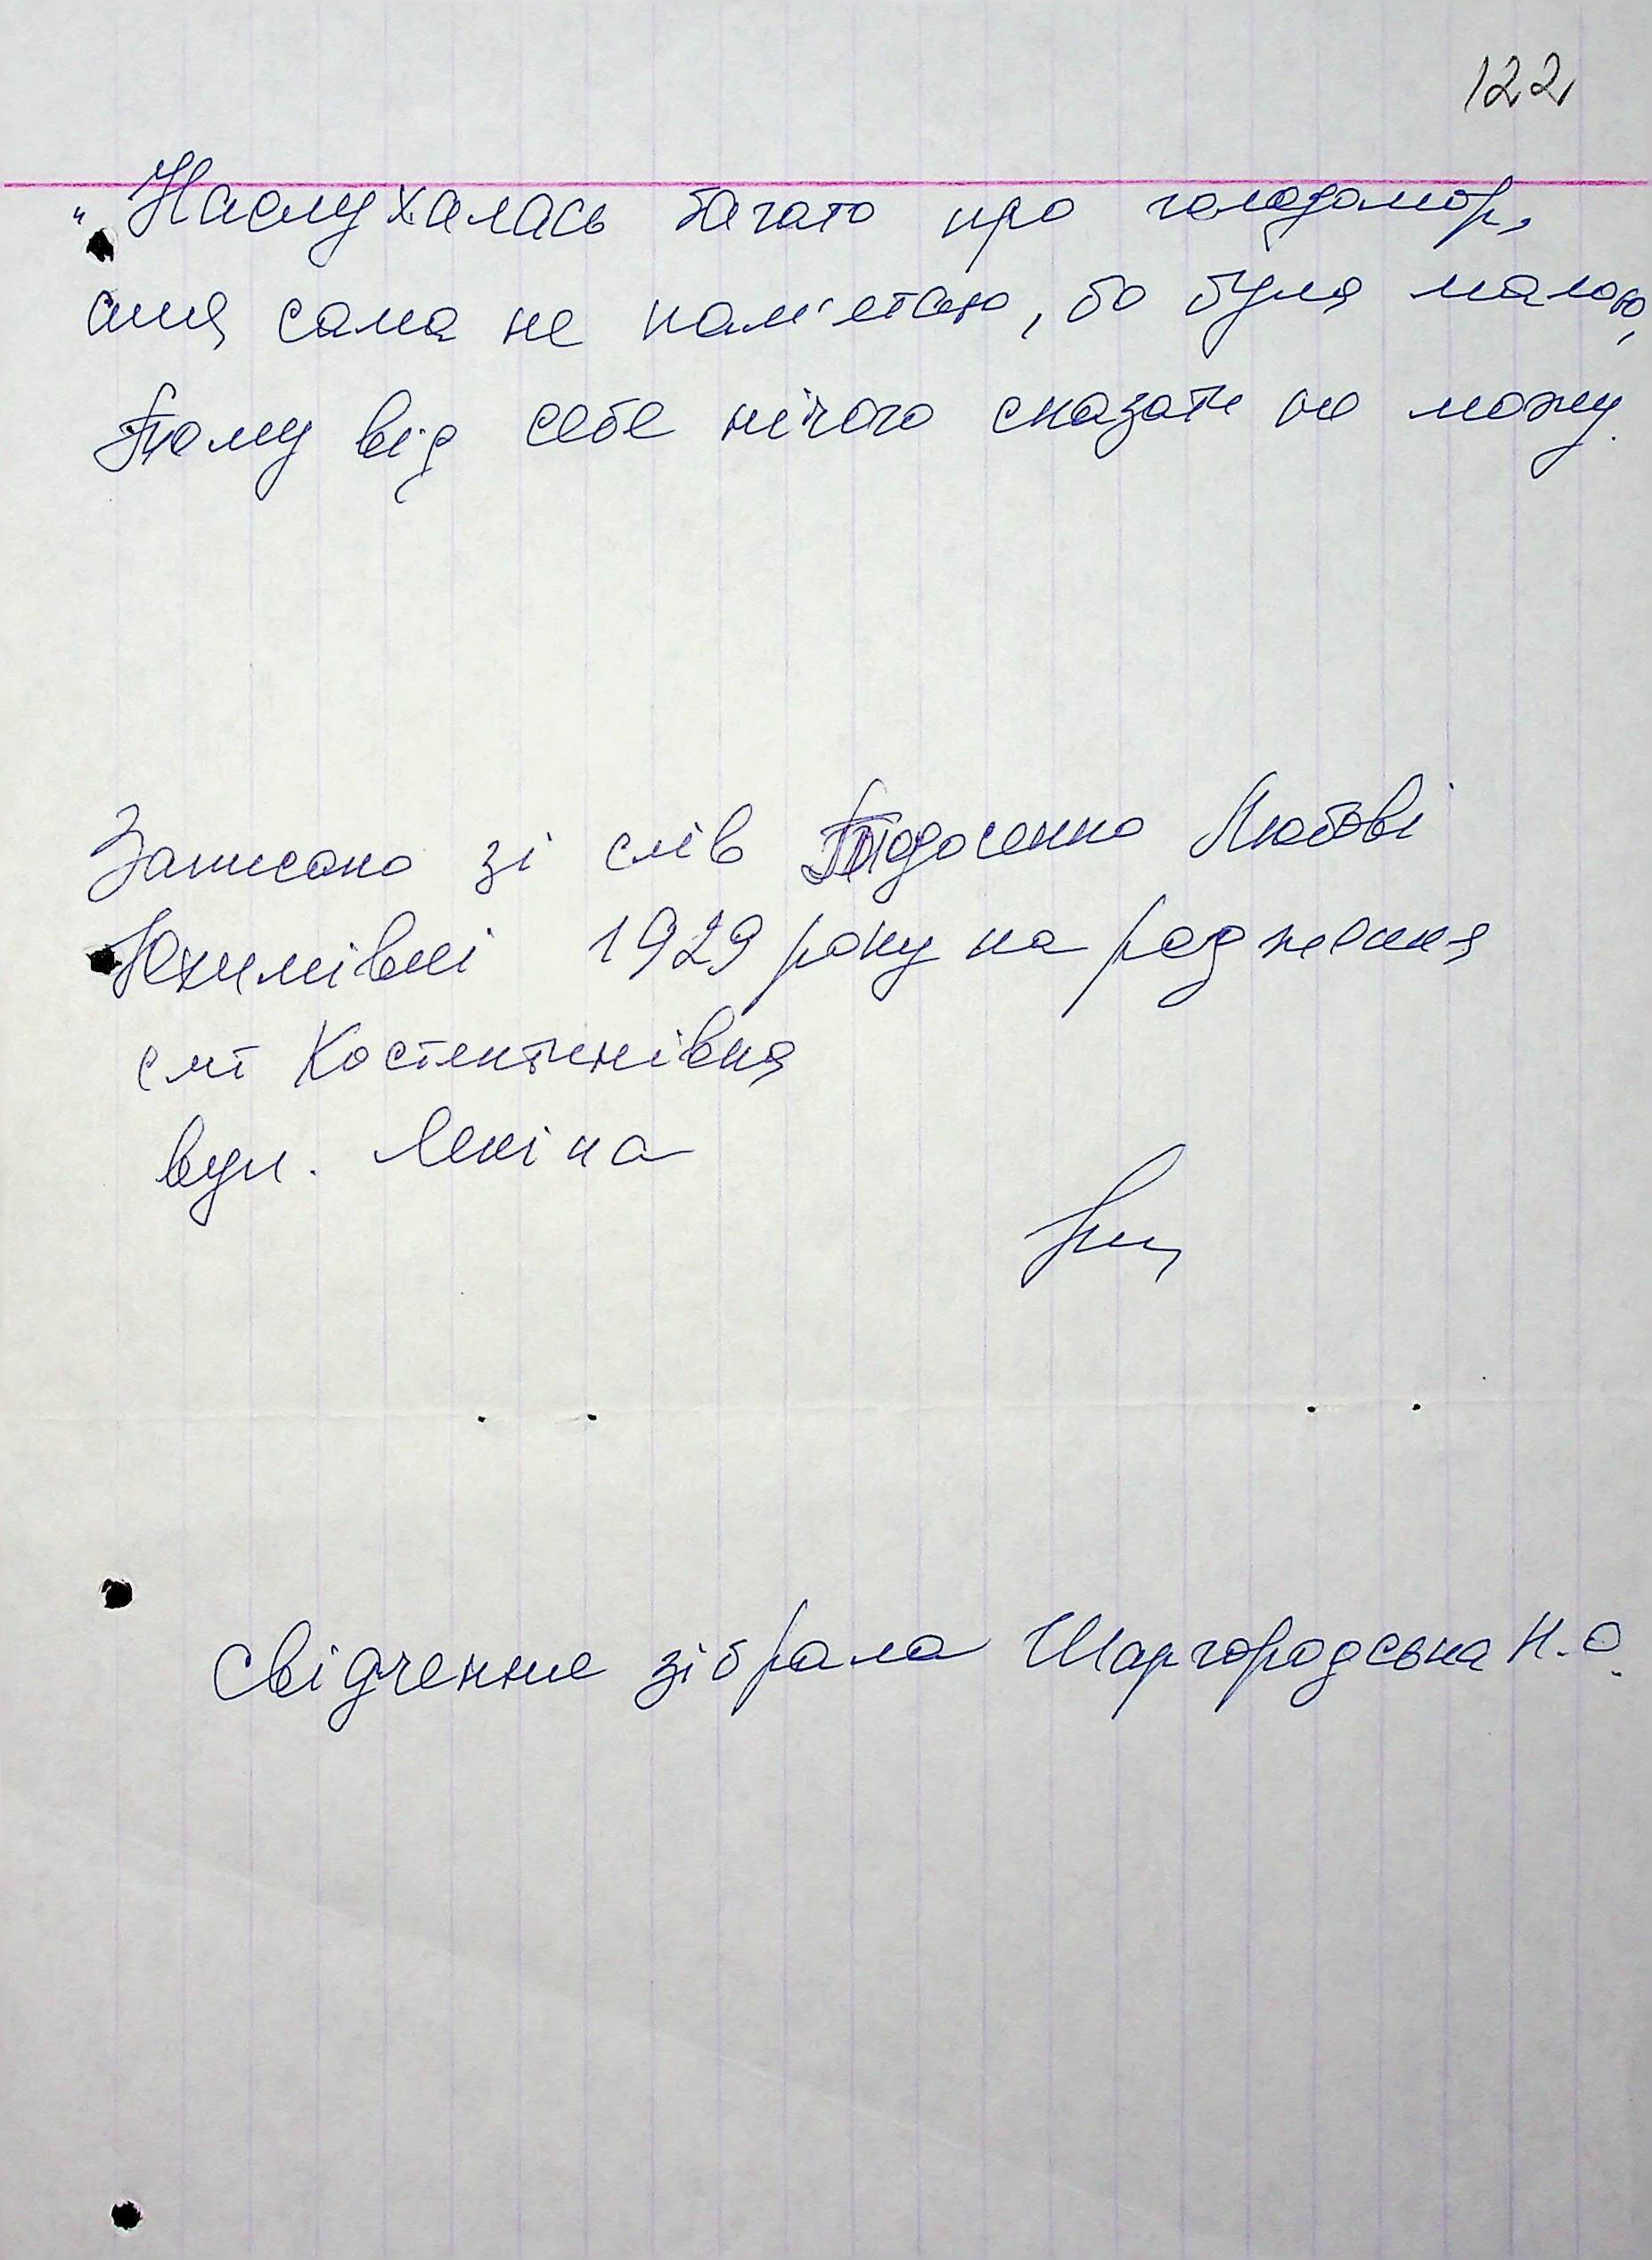 122
„Наслухалась багато про голодомор,
сама не пам'ятаю, бо була малою,
тому від себе нічого сказати не можу.
Записано зі слів Тодосенко Любові
Юхимівні 1929 року на родження
смт Костянтинівка
вул. Леніна
свідчення зібрала Шаргородська Н.О.